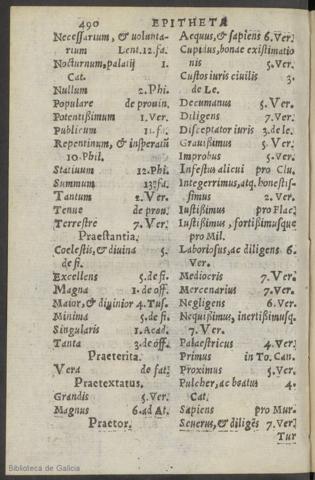 490 EPITHETA
Necessarium, & volunta-
rium Lent. 12. fa.
Nocturnum, palatij 1.
Cat.
Nullum 2. Phi.
Populare de prouin.
Potentißimum 1. Ver.
Publicum 11. fa.
Repentinum, & insperatū
10. Phil.
Statiuum 12. Phi.
Summum 13. fa.
Tantum 2. Ver.
Tenue de prou.
Terrestre 7. Ver.
Praestantia.
Coelestis, & diuina 5.
de fi.
Excellens 5. de fi.
Magna 1. de off.
Maior, & diuinior 4. Tus.
Minima 5. de fi.
Singularis 1. Acad.
Tanta 3. de off.
Praeterita.
Vera de fat.
Praetextatus.
Grandis 5. Ver.
Magnus 6. ad At.
Praetor.
Aequus, & sapiens 6. Ver.
Cupidus, bonae existimatio
nis 5. Ver.
Custos iuris ciuilis 3.
de Le.
Decumanus 5. Ver.
Diligens 7. Ver.
Disceptator iuris 3. de le.
Grauißimus 5. Ver.
Improbus 5. Ver.
Infestus alicui pro Clu.
Integerrimus, atq, honestis-
simus 2. Ver.
Iustißimus pro Flac.
Iustißimus, fortißimusque
pro Mil.
Laboriosus, ac diligens 6.
Ver.
Mediocris 7. Ver.
Mercenarius 7. Ver.
Negligens 6. Ver.
Nequißimus, inertißimusq,
7. Ver.
Palaestricus 4. Ver.
Primus in To. Can.
Proximus 5. Ver.
Pulcher, ac beatus 4.
Cat.
Sapiens pro Mur.
Seuerus, & diligēs 7. Ver.
Tur
Biblioteca de Galicia